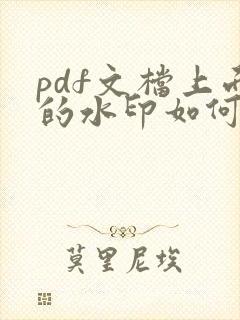 pdf文檔上
的水印如何
莫里尼埃